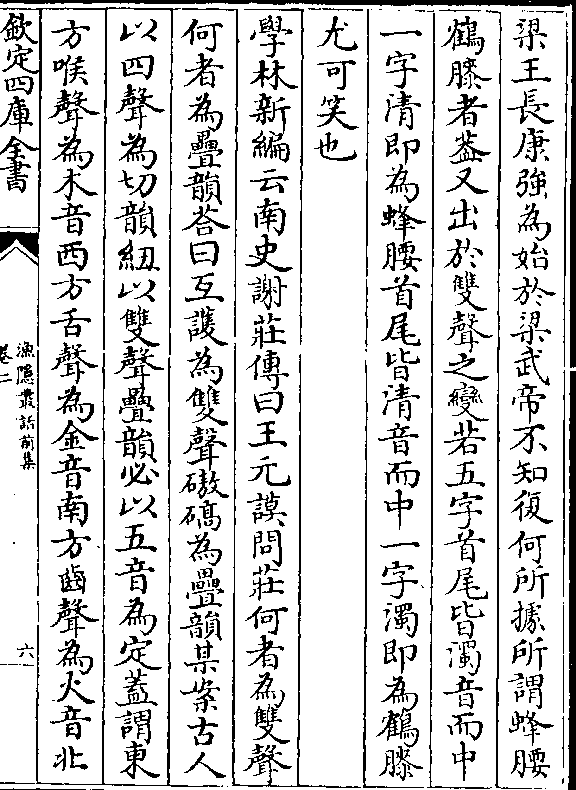 梁王長康強為始於梁武帝不知復何所據所謂蜂腰
鶴膝者葢又出於雙聲之變若五字首尾皆濁音而中
一字清即為蜂腰首尾皆清音而中一字濁即為鶴膝
尤可笑也
學林新編云南史謝莊傳曰王元謨問莊何者為雙聲
何者為疊韻荅曰互䕶為雙聲磝碻為疊韻某案古人
以四聲為切韻紐以雙聲疊韻必以五音為定蓋謂東
方喉聲為木音西方舌聲為金音南方齒聲為火音北
欽定四庫全書
漁隠叢話前集
卷二
六